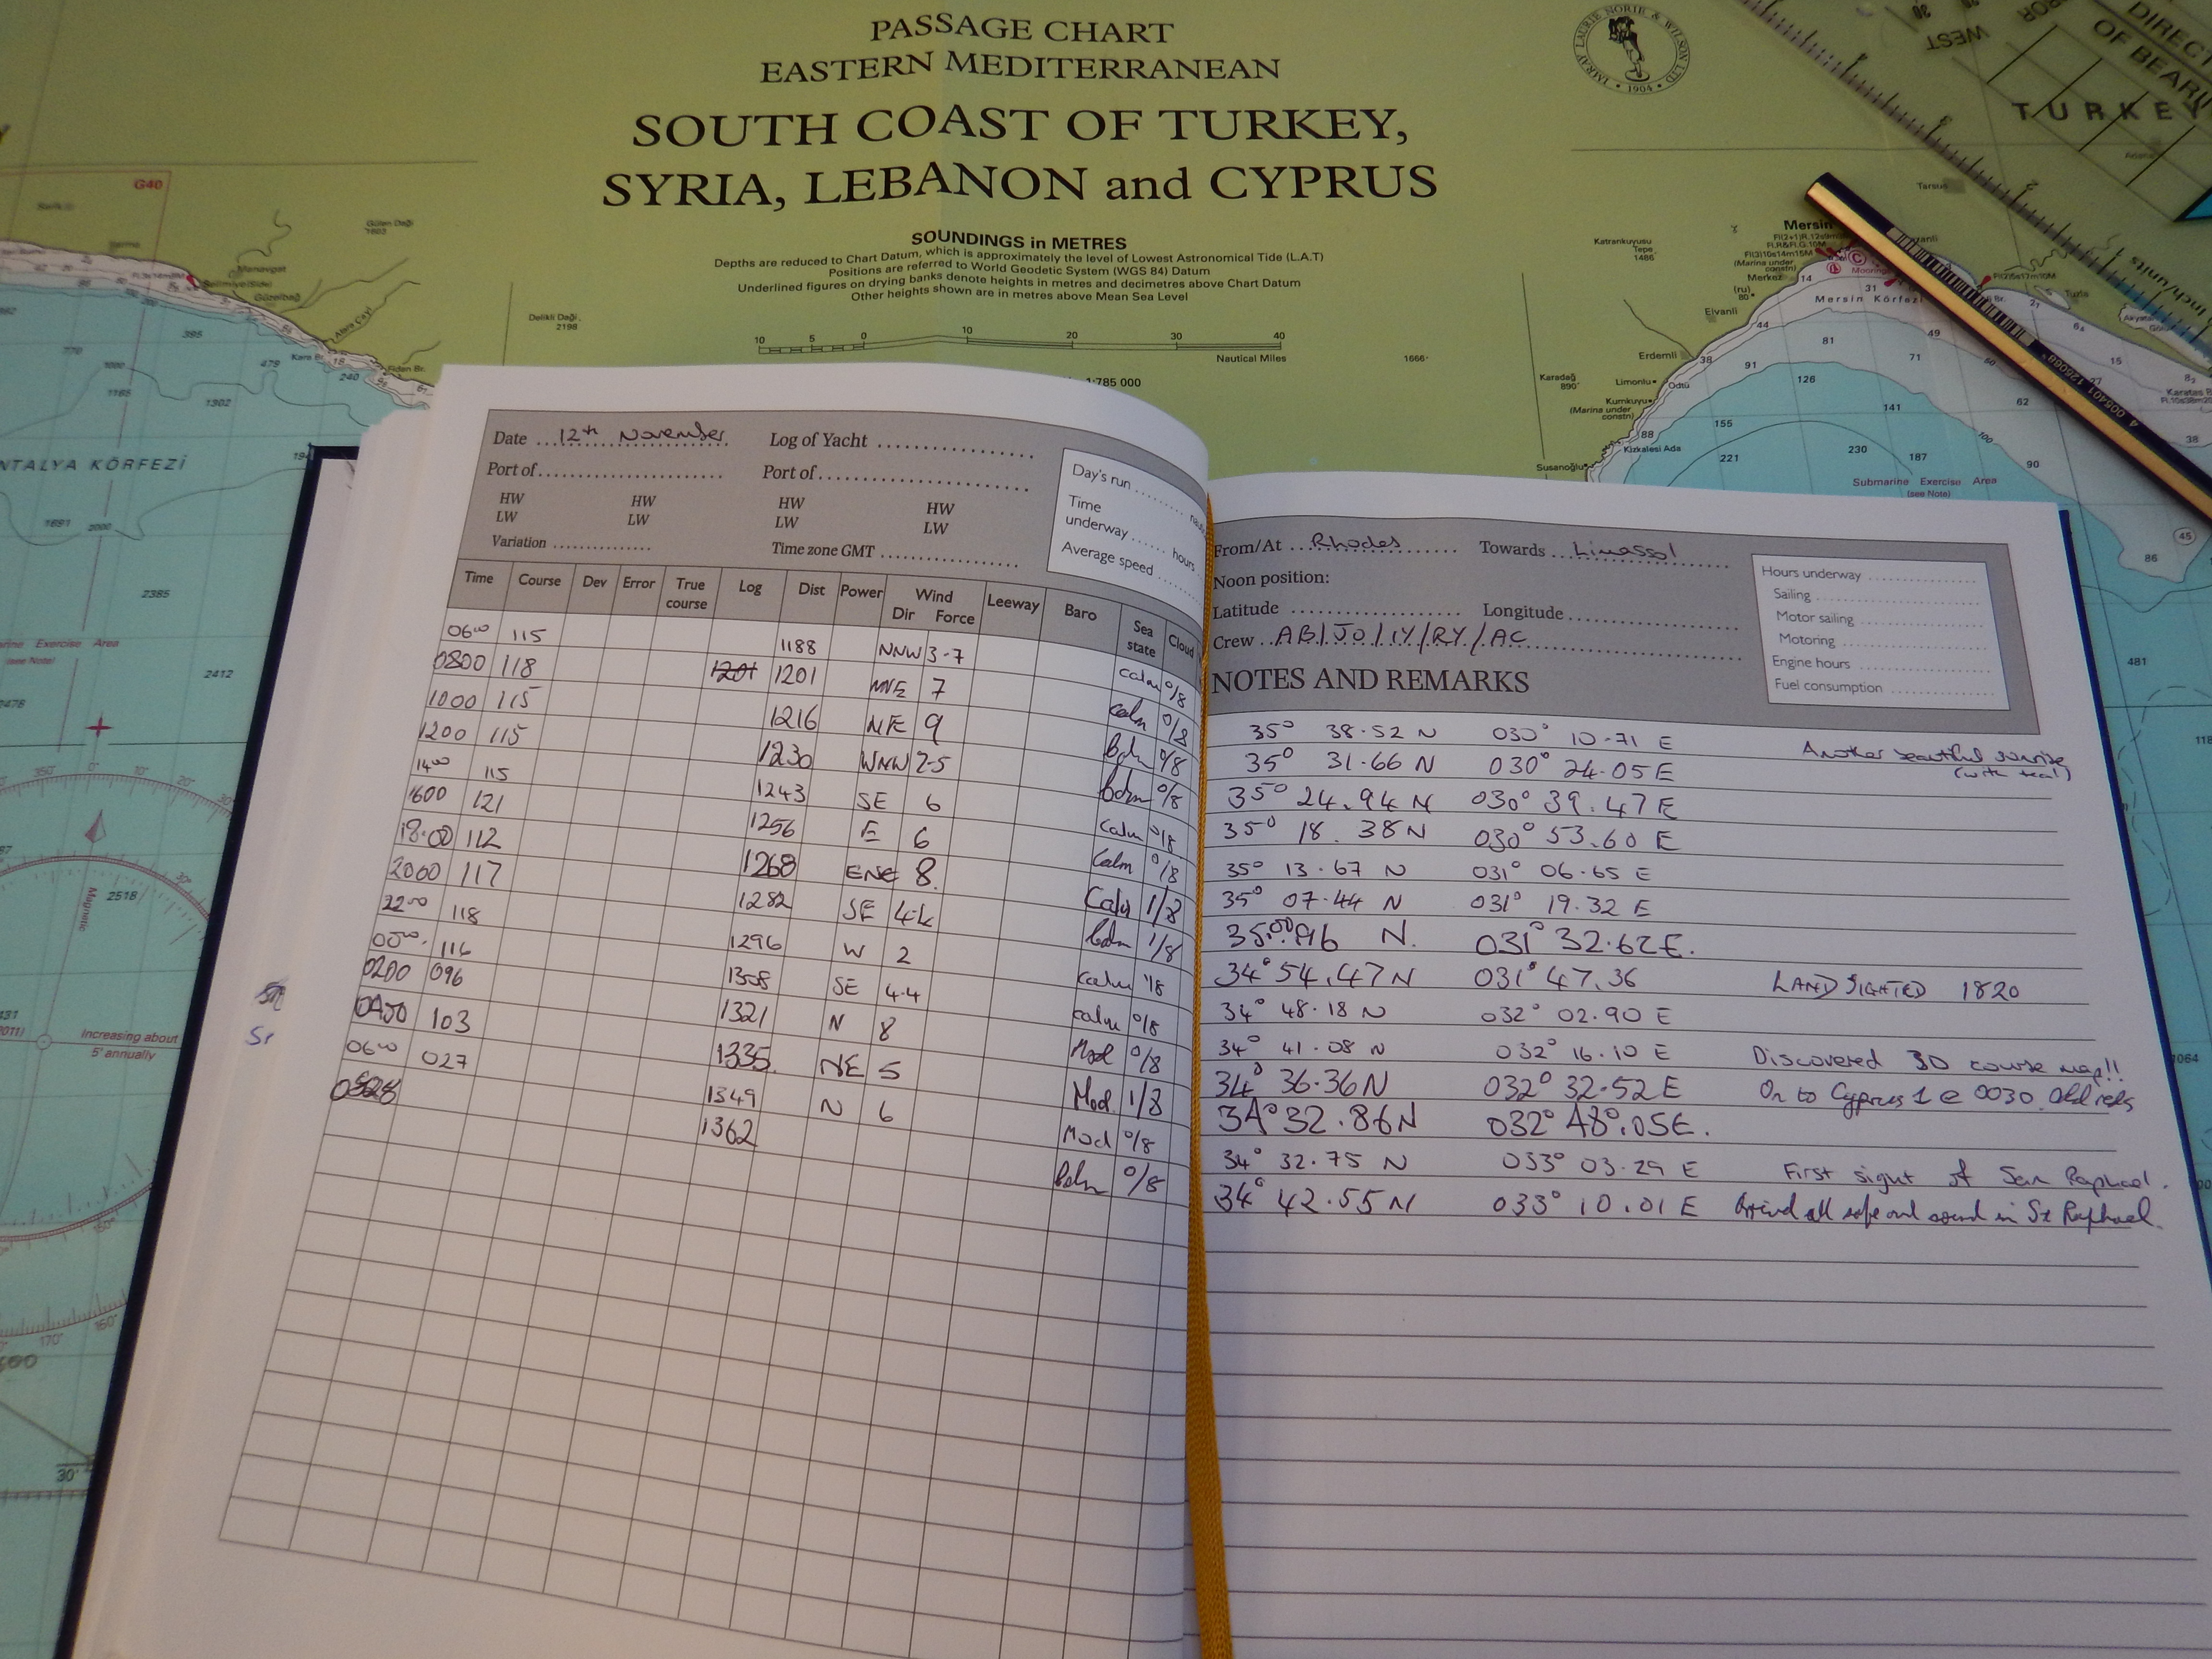 PASSAGE CHART
EASTERN MEDITERRANEAN
SOUTH COAST OF TURKEY,
SYRIA, LEBANON and CYPRUS
SOUNDINGS in METRES
Depths are reduced to Chart Datum, which is approximately the level of Lowest Astronomical Tide (L.A.T)
Positions are referred to World Geodetic System (WGS 84) Datum
Underlined figures on drying banks denote heights in metres and decimetres above Chart Datum
Other heights shown are in metres above Mean Sea Level
10 5 0 10 20 30 40
Nautical Miles
1:785 000
IMRAY LAURIE NORIE & WILSON LTD
1904
WEST
DIRECT
OF BEARI
TURKEY
Tarsus
G40
Manavgat
Güzelbağ
Alara Çayi
Delikli Daği
2198
395
479
240
1165
1302
ANTALYA KÖRFEZİ
1691
2000
2385
Exercise Area
(see Note)
2412
2518
Magnetic
Increasing about
5' annually
Katrankuyusu
Tepe
1486
1666
Mersin
(Marina under
constn)
Merkez
Mersin Körfezi
Elvanli
Erdemli
Karadağ
890
Limonlu
Kumkuyu
(Marina under
constn)
Kizkalesi Ada
Susanoğlu
14
31
44
49
81
71
38
91
126
62
141
155
88
230
187
221
90
Submarine Exercise Area
(see Note)
45
86
481
Karatas
005401 126088
Date 12th November
Log of Yacht
Port of
Port of
HW HW HW HW
LW LW LW LW
Variation
Time zone GMT
Day's run
Time
underway hours
Average speed
Time Course Dev Error True course Log Dist Power Wind Dir Force Leeway Baro Sea state Cloud
0600 115 1188 NNW 3-7 calm 0/8
0800 118 1201 1201 NNE 7 calm 0/8
1000 115 1216 NE 9 Calm 0/8
1200 115 1230 WNW 2-5 Calm 0/8
1400 115 1243 SE 6 Calm 0/8
1600 121 1256 E 6 Calm 0/8
18:00 112 1268 ENE 8. Calm 1/8
2000 117 1282 SE 4.4 Calm 1/8
2200 118 1296 W 2 Calm 1/8
0000. 116 1308 SE 4.4 calm 0/8
0200 096 1321 N 8 Mod 0/8
0400 103 1335. NE 5 Mod. 1/8
0600 027 1349 N 6 Mod 0/8
1362 Calm 0/8
From/At Rhodes
Towards Limassol
Noon position:
Latitude Longitude
Crew AB/JO/IY/RY/AC
Hours underway
Sailing
Motor sailing
Motoring
Engine hours
Fuel consumption
NOTES AND REMARKS
35° 38.52 N 030° 10.71 E Another beautiful sunrise
(with tea!)
35° 31.66 N 030° 24.05 E
35° 24.94 N 030° 39.47 E
35° 18.38 N 030° 53.60 E
35° 13.67 N 031° 06.65 E
35° 07.44 N 031° 19.32 E
N. 031° 32.62 E.
34° 54.47 N 031° 47.36 LAND SIGHTED 1820
34° 48.18 N 032° 02.90 E
34° 41.08 N 032° 16.10 E Discovered 3D course map!!
34° 36.36 N 032° 32.52 E On to Cyprus 1 @ 0030.
34° 32.86 N 032° 48.05 E.
34° 32.75 N 033° 03.29 E First sight of San Raphael.
34° 42.55 N 033° 10.01 E Arrived all safe and sound in St Raphael.